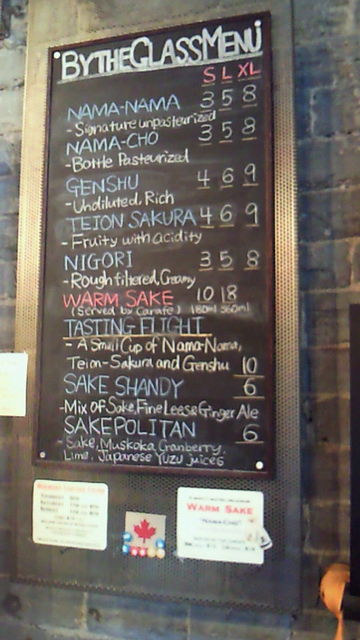 BY THE GLASS MENU
S L XL
NAMA-NAMA 3 5 8
- Signature unpasteurized
NAMA-CHO 3 5 8
- Bottle Pasteurized
GENSHU 4 6 9
- Undiluted, Rich
TEION SAKURA 4 6 9
- Fruity with acidity
NIGORI 3 5 8
- Rough filtered, Creamy
WARM SAKE 10 18
(Served by Carafe) 180ml 360ml
TASTING FLIGHT
- A Small Cup of Nama-Nama,
Teion-Sakura and Genshu 10
SAKE SHANDY 6
- Mix of Sake, Fine Lees & Ginger Ale
SAKEPOLITAN 6
- Sake, Muskoka Cranberry,
Lime, Japanese Yuzu juices
WARM SAKE